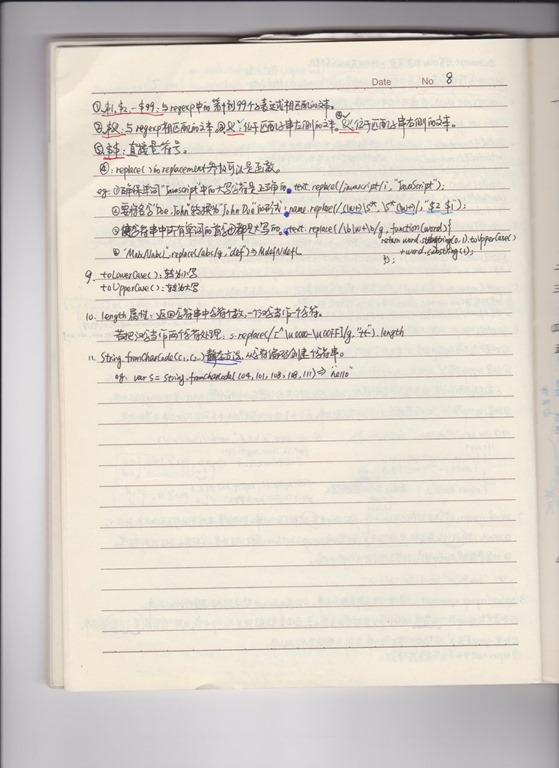 Date No 8
①$1、$2…$99:与regexp中的第1到99个表达式相匹配的文本。
②$&:与regexp相匹配的文本。③$`:位于匹配子串左侧的文本。④$':位于匹配子串右侧的文本。
⑤$$:直接量符号。
④:replace()的replacement参数可以是函数。
eg:①确保单词"Javascript"中的大写字符是正确的。text.replace(/javascript/i, "JavaScript");
②要将名字"Doe,John"转换为"John Doe"的形式:name.replace(/(\w+)\s*,\s*(\w+)/,"$2 $1");
③把字符串中所有单词的首字母都是大写的。text.replace(/\b\w+\b/g, function(word){
return word.substring(0,1).toUpperCase()
+word.substring(1);
});
④"MabcNabc".replace(/abc/g,"def")⇒MdefNdef
9. toLowerCase():转为小写
toUpperCase():转为大写
10. length属性:返回字符串中字符个数,一汉字当作一个字符。
若把汉字当作两个字符处理:s.replace(/[^\u0000-\u00FF]/g,"**").length
11. String.fromCharCode(c1,c2…)静态方法,从字符编码创建字符串。
eg: var s = String.fromCharCode(104,101,108,108,111)⇒"hello"